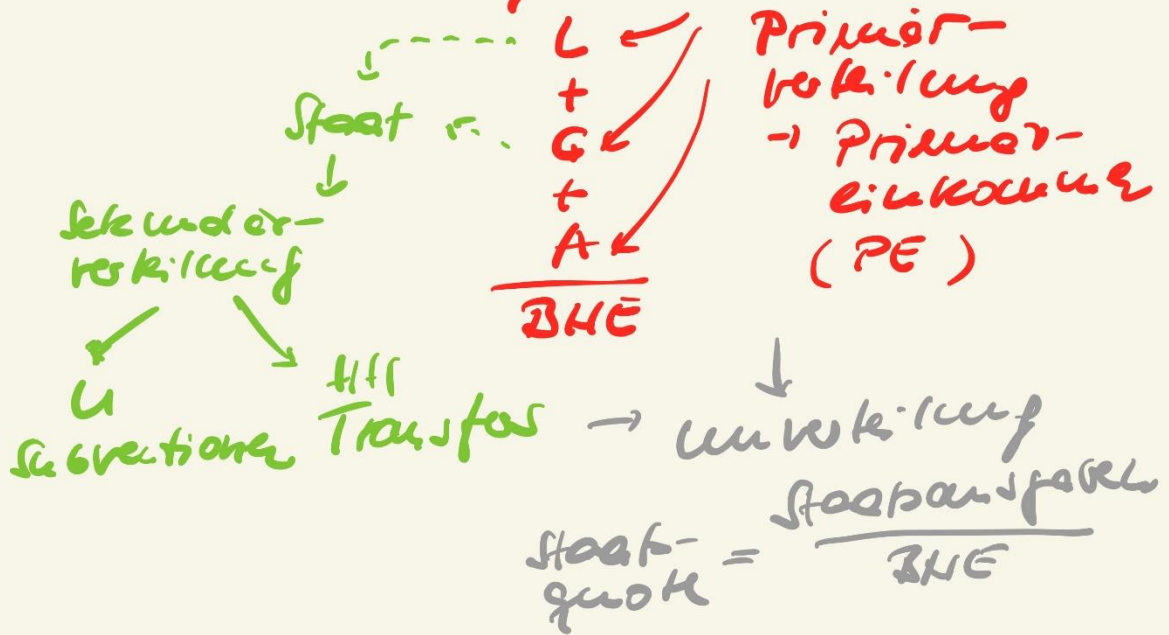 L
+
G
+
A
BNE
Primär-
verteilung
→ Primär-
einkommen
(PE)
Staat
Sekundär-
verteilung
U
Subventionen
HH
Transfers
→ Umverteilung
Staats-
quote = Staatsausgaben
BNE